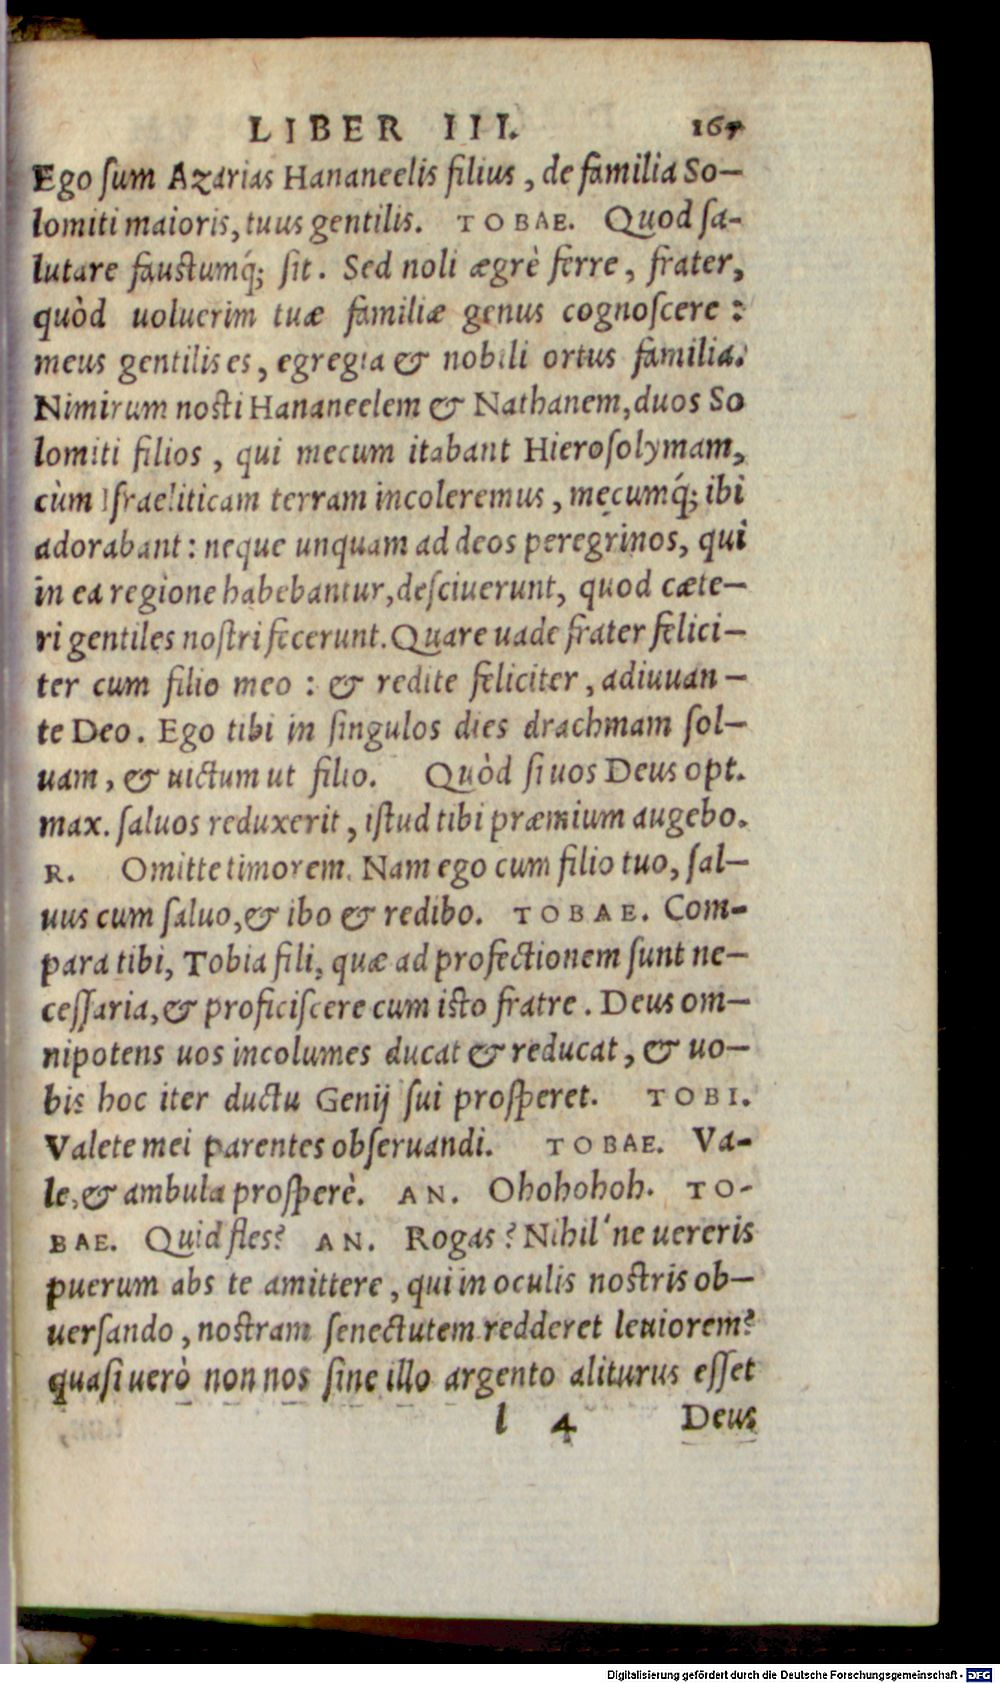 LIBER III. 167
Ego ſum Azarias Hananeelis filius, de familia So-
lomiti maioris, tuus gentilis. TOBAE. Quod ſa-
lutare fauſtumq́; ſit. Sed noli ægrè ferre, frater,
quòd uoluerim tuæ familiæ genus cognoſcere:
meus gentilis es, egregia & nobili ortus familia.
Nimirum noſti Hananeelem & Nathanem, duos So
lomiti filios, qui mecum itabant Hieroſolymam,
cùm Iſraeliticam terram incoleremus, mecumq́; ibi
adorabant: neque unquam ad deos peregrinos, qui
in ea regione habebantur, deſciuerunt, quod cæte-
ri gentiles noſtri fecerunt. Quare uade frater felici-
ter cum filio meo: & redite feliciter, adiuuan-
te Deo. Ego tibi in ſingulos dies drachmam ſol-
uam, & uictum ut filio. Quòd ſi uos Deus opt.
max. ſaluos reduxerit, iſtud tibi præmium augebo.
R. Omitte timorem. Nam ego cum filio tuo, ſal-
uus cum ſaluo, & ibo & redibo. TOBAE. Com-
para tibi, Tobia fili, quæ ad profectionem ſunt ne-
ceſſaria, & proficiſcere cum iſto fratre. Deus om-
nipotens uos incolumes ducat & reducat, & uo-
bis hoc iter ductu Genij ſui proſperet. TOBI.
Valete mei parentes obſeruandi. TOBAE. Va-
le, & ambula proſperè. AN. Ohohohoh. TO-
BAE. Quid fles? AN. Rogas? Nihil'ne uereris
puerum abs te amittere, qui in oculis noſtris ob-
uerſando, noſtram ſenectutem redderet leuiorem?
quaſi uerò non nos ſine illo argento aliturus eſſet
l 4 Deus
Digitalisierung gefördert durch die Deutsche Forschungsgemeinschaft - DFG